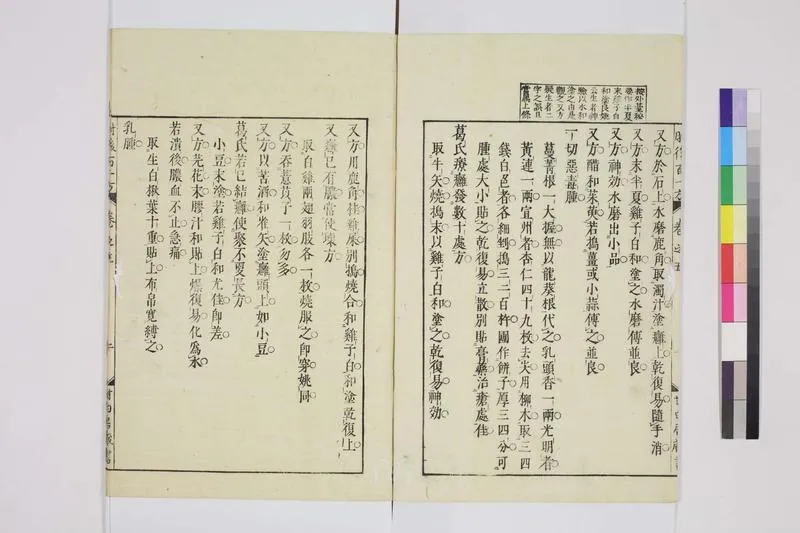 按外臺秘
要作半夏
末雞子白
和塗良煥
云生者神
驗以水和
塗之由是
觀之又方
字之誤且
當屬上條
又方於石上水磨鹿角取濁汁塗癰上乾復易隨手消
又方末半夏雞子白和塗之水磨傅並良
又方神効水磨出小品
又方醋和茱萸若搗薑或小蒜傅之並良
一切惡毒腫
蔓菁根一大握無以龍葵根代之乳頭香一兩光明者
黃連一兩宜州者杏仁四十九枚去尖用柳木取三四
錢白色者各細剉搗三二百杵團作餅子厚三四分可
腫處大小貼之乾復易立散別貼膏藥治瘡處佳
葛氏療癰發數十處方
取牛矢燒搗末以雞子白和塗之乾復易神効
又方用鹿角桂雞屎別搗燒合和雞子白和塗乾復上
又癰已有膿當使壞方
取白雞兩翅羽肢各一枚燒服之即穿姚同
又方吞薏苡子一枚勿多
又方以苦酒和雀矢塗癰頭上如小豆
葛氏若已結癰使聚不更長方
小豆末塗若雞子白和尤佳即差
又方芫花末膠汁和貼上燥復易化爲水
若潰後膿血不止急痛
取生白楸葉十重貼上布帛寬縛之
乳腫
肘後百一方
卷之五